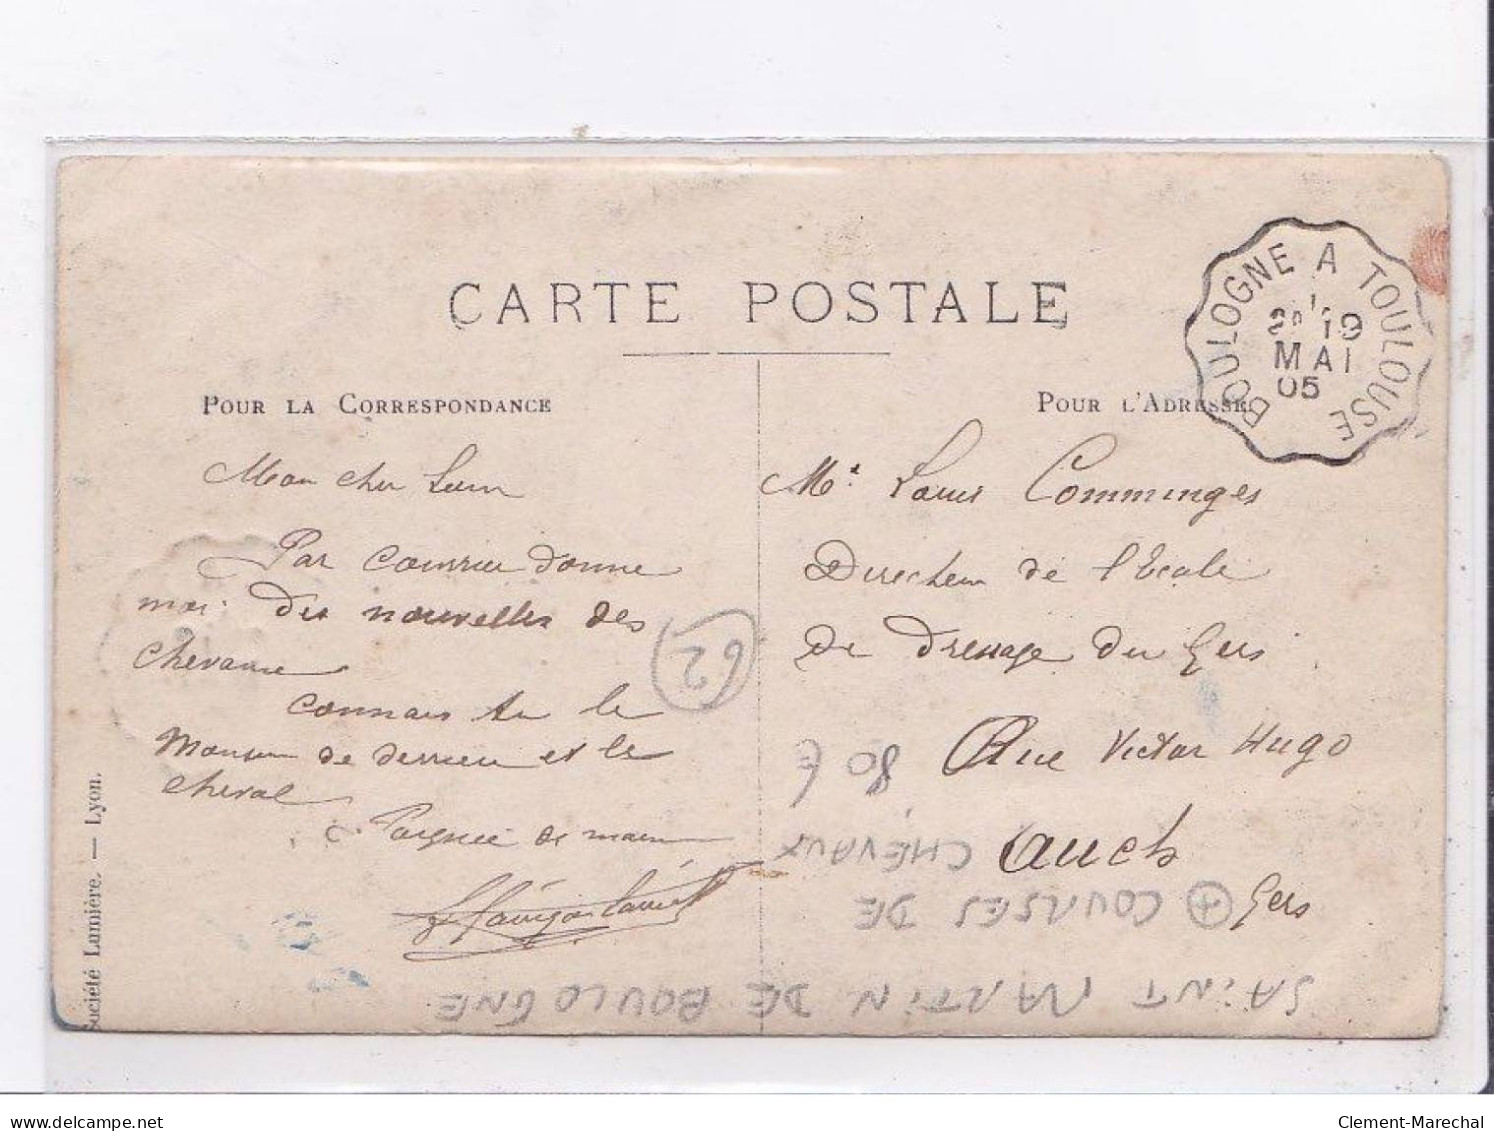 CARTE POSTALE
BOULOGNE A TOULOUSE
19
MAI
05
POUR LA CORRESPONDANCE
Mon cher
Par courrier donne
moi des nouvelles des
chevaux
connais tu le
Monsieur de derrière et le
cheval
? Poignée de main
62
POUR L'ADRESSE
Mr Louis Comminges
Directeur de l'Ecole
de Dressage du Gers
Rue Victor Hugo
Auch
Gers
Société Lumière. — Lyon.
SAINT MARTIN DE BOULOGNE
+ COURSES DE
CHEVAUX
80 €
delcampe.net
Clement-Marechal